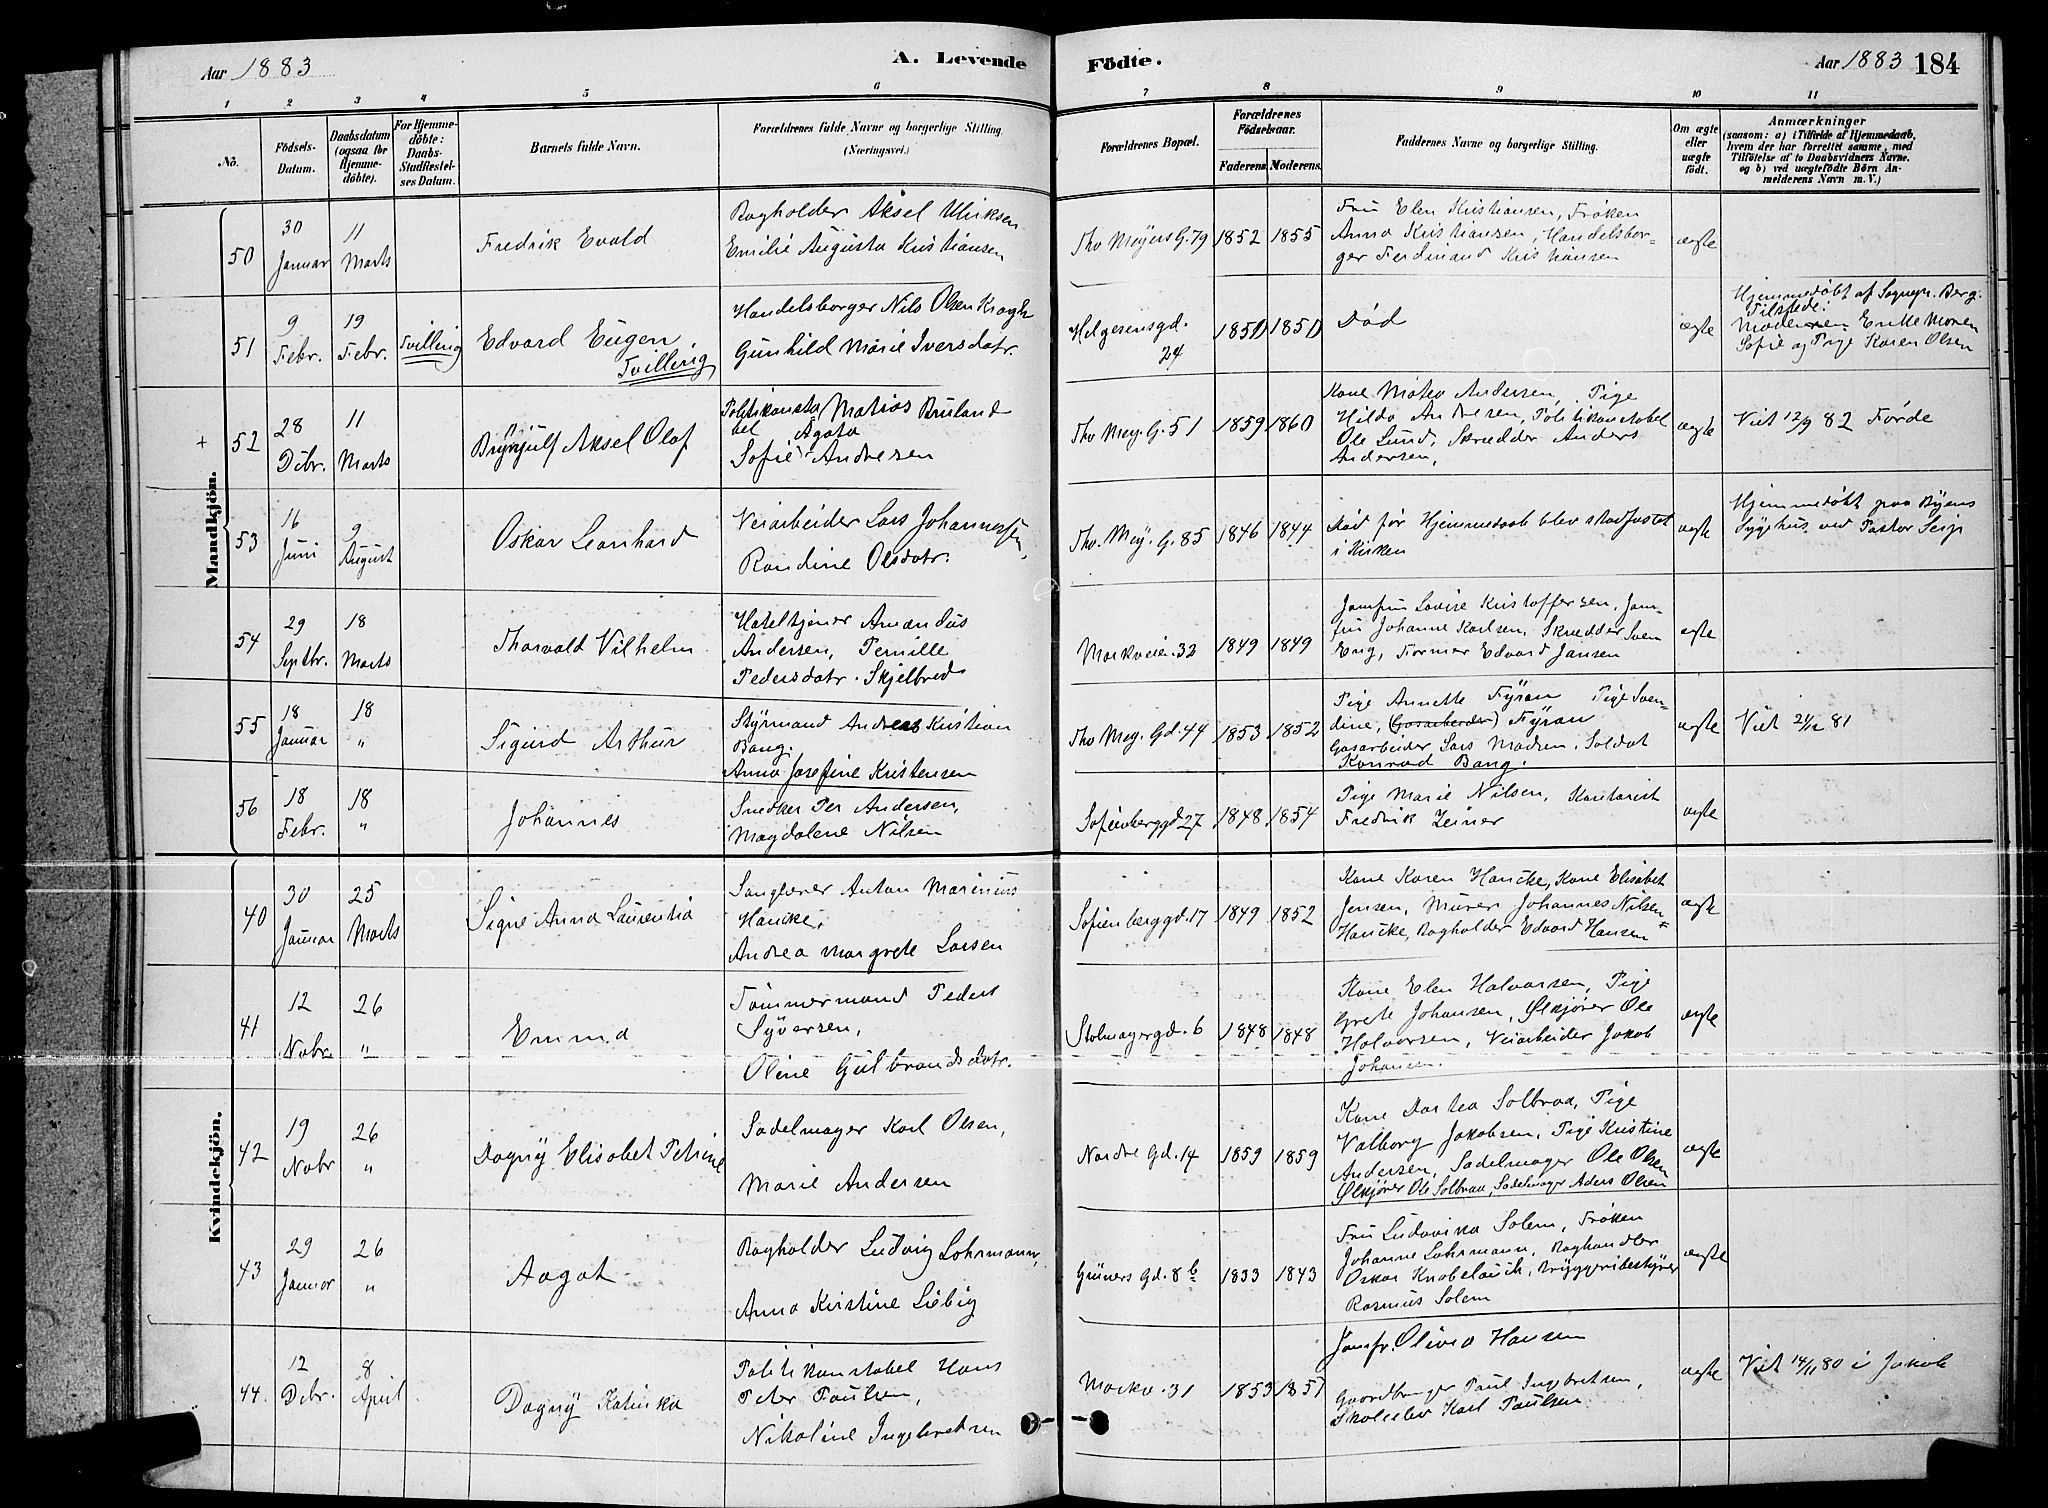 Aar 1883
A. Levende Födte.
Aar 1883 184
1 2 3 4 5 6 7 8 9 10 11
No.
Födsels-
Datum.
Daabsdatum
(ogsaa for
Hjemme-
döbte).
For Hjemme-
döbte:
Daabs-
Stadfæstel-
ses Datum.
Barnets fulde Navn.
Forældrenes fulde Navne og borgerlige Stilling.
(Næringsvei.)
Forældrenes Bopæl.
Forældrenes
Födselsaar.
Faderens. Moderens.
Faddernes Navne og borgerlige Stilling.
Om ægte
eller
uægte
födt.
Anmærkninger
(saasom: a) i Tilfælde af Hjemmedaab,
hvem der har forrettet samme, med
Tilföielse af to Daabsvidners Navne.
og b) ved uægtefödte Börn An-
melderens Navn m. V.)
Mandkjön.
50
30
Januar
11
Marts
Fredrik Evald
Bogholder Aksel Ulriksen
Emilie Augusta Kristiansen
Tho Meyers G. 79
1852 1855
Fru Elen Kristiansen, Frøken
Anna Kristiansen, Handelsbor-
ger Ferdinand Kristiansen
ægte
51
9
Febr.
19
Febr.
Tvilling
Edvard Eugen
Tvilling
Handelsborger Nils Olsen Krogh
Gunhild Marie Iversdatr.
Helgesensgd.
24
1850 1850
Død
ægte
Hjemmedøbt af Sognepr. Berg.
Tilstede:
Moderen Enke Maren
Sofie og Pige Karen Olsen
+
52
28
Dcbr.
11
Marts
Brynjulf Aksel Olaf
Politikonsta Matias Bruland
bel Agata
Sofie Andresen
Tho Mey. G. 51
1859 1860
Kone Matea Andersen, Pige
Hilda Andresen, Politikonstabel
Ole Lund, Skrædder Anders
Andersen,
ægte
Viet 12/9 82 Førde
53
16
Juni
9
August
Oskar Leonhard
Veiarbeider Lars Johannessen,
Randine Olsdatr.
Tho. Mey. G. 85
1846 1844
Død før Hjemmedaab blev stadfæstet
i Kirken
ægte
Hjemmedøbt paa Byens
Sygehus ved Pastor
54
29
Septbr.
18
Marts
Thorvald Vilhelm
Hoteltjener Amandus
Andersen, Pernille
Pedersdatr. Skjelbred
Markveien 33
1849 1849
Jomfru Lovise Kristoffersen, Jom-
fru Johanne Karlsen, Skrædder Sven
Eng, Former Edvard Jansen
ægte
55
18
Januar
18
"
Sigurd Arthur
Styrmand Andreas Kristian
Bang.
Anna Josefine Kristensen
Tho Mey. Gd. 44
1853 1852
Pige Annette Fyran Pige Sven-
dine, (Gasarbeider) Fyran
Gasarbeider Lars Madsen, Soldat
Konrad Bang.
ægte
Viet 24/12 81
56
18
Febr.
18
"
Johannes
Snedker Per Andersen,
Magdalene Nilsen
Sofienberggd 27
1848 1854
Pige Marie Nilsen, Kontorist
Fredrik Zeiner
ægte
Kvindekjön.
40
30
Januar
25
Marts
Signe Anna Laurentia
Sanglærer Anton Marinius
Hancke,
Andrea Margrete Larsen
Sofienberggd. 17
1849 1852
Kone Karen Hancke, Kone Elisabet
Jensen, Murer Johannes Nilsen
Hancke, Bogholder Edvard Hansen
ægte
41
12
Nobr.
26
"
Emma
Tømmermand Peder
Syversen,
Oline Gulbrandsdatr.
Stolmagergd. 6
1848 1848
Kone Elen Halvorsen, Pige
Grete Johansen, Ølkjører Ole
Halvorsen, Veiarbeider Jakob
Johansen.
ægte
42
19
Nobr
26
"
Dagny Elisabet Petrine
Sadelmager Karl Olsen,
Marie Andersen
Nordre Gd. 14
1859 1859
Kone Dortea Solbraa, Pige
Valborg Jakobsen, Pige Kristine
Andersen, Sadelmager Ole Olsen
Ølkjører Ole Solbraa, Sadelmager Aders Olsen
ægte
43
29
Januar
26
"
Aagot
Bogholder Ludvig Lohrmann,
Anna Kirstine Liebig
Grüners Gd. 8 b
1833 1843
Fru Ludovika Solem, Frøken
Johanne Lohrmann, Boghandler
Oskar Knobelauch, Bryggeribestyrer
Rasmus Solem
ægte
44.
12
Dcbr.
8
April
Dagny Katinka
Politikonstabel Hans
Peter Paulsen,
Nikoline Ingebretsen
Markv. 31
1853 1851
Jomfr. Olivia Hansen
Gaardbruger Paul Ingebretsen,
Skoleelev Karl Paulsen
ægte
Viet 14/11 80 i Jakob